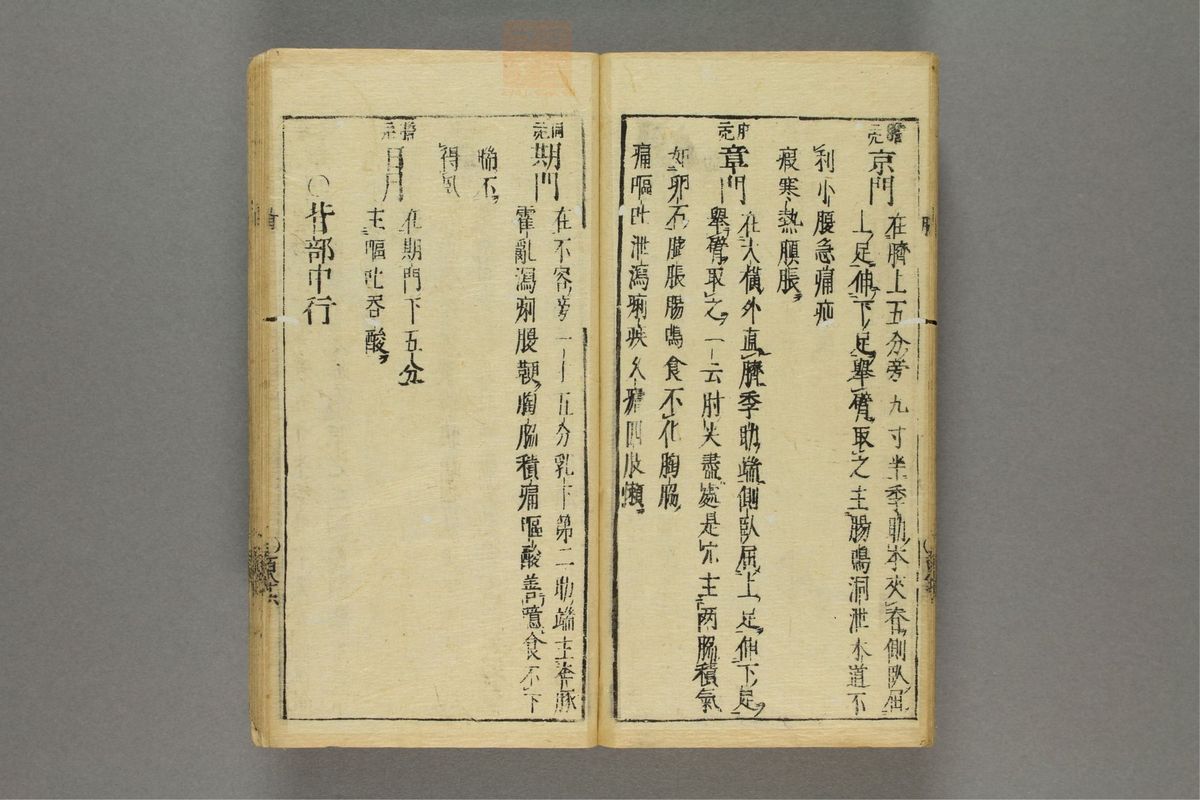 膽穴
京門
在臍上五分旁九寸半季肋本夾脊側臥屈
上足伸下足舉臂取之主腸鳴洞泄水道不
利小腹急痛
寒熱䐜脹
章門
在大橫外直臍季肋端側臥屈上足伸下足
舉臂取之一云肘尖盡處是穴主兩脇積氣
如卵石臌脹腸鳴食不化胸脇
痛嘔吐泄瀉痢疾久瘧四肢懶
期門
在不容旁一寸五分乳下第二肋端主奔豚
霍亂瀉痢腹鞕胸脇積痛嘔酸善噫食不下
喘不
得臥
日月
在期門下五分
主嘔吐吞酸
○背部中行